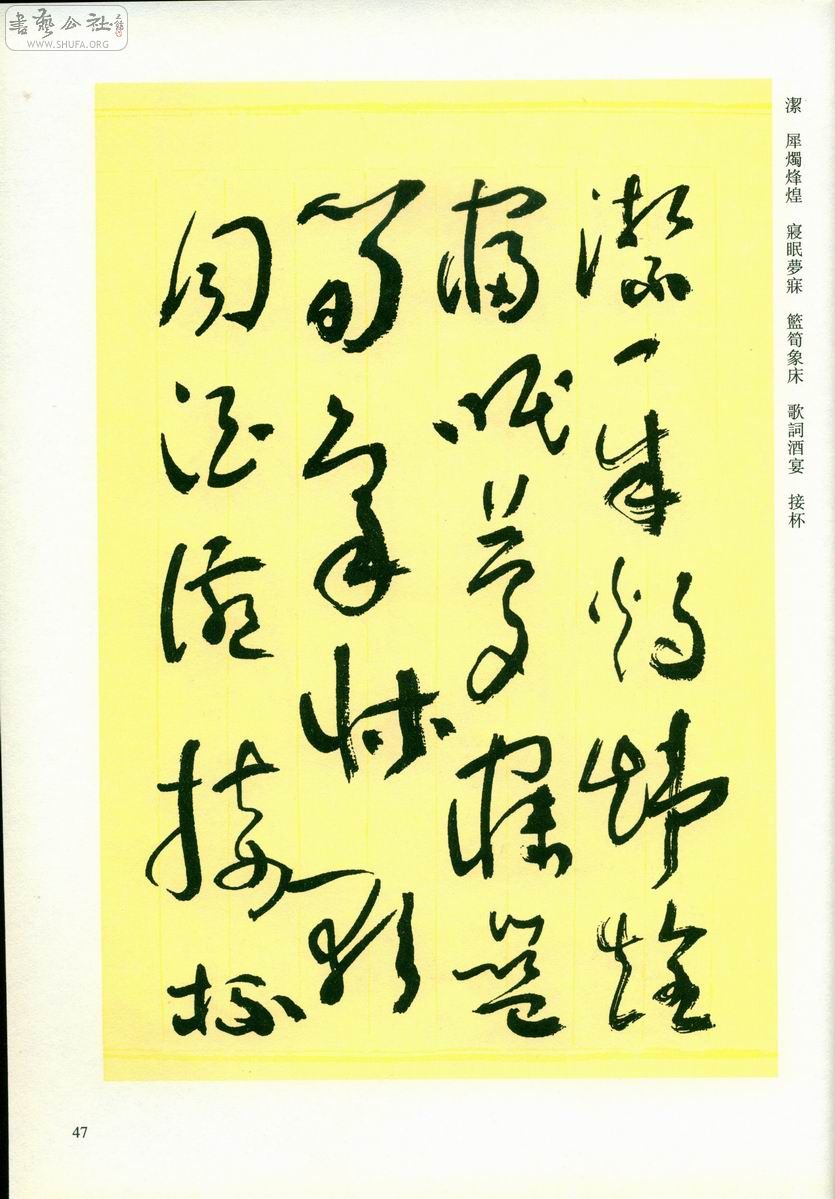 書藝公社
WWW.SHUFA.ORG
潔 犀燭烽煌 寢眠夢寐 籃筍象床 歌詞酒宴 接杯
潔犀燭烽煌
寢眠夢寐籃
筍象床歌
詞酒宴接杯
47